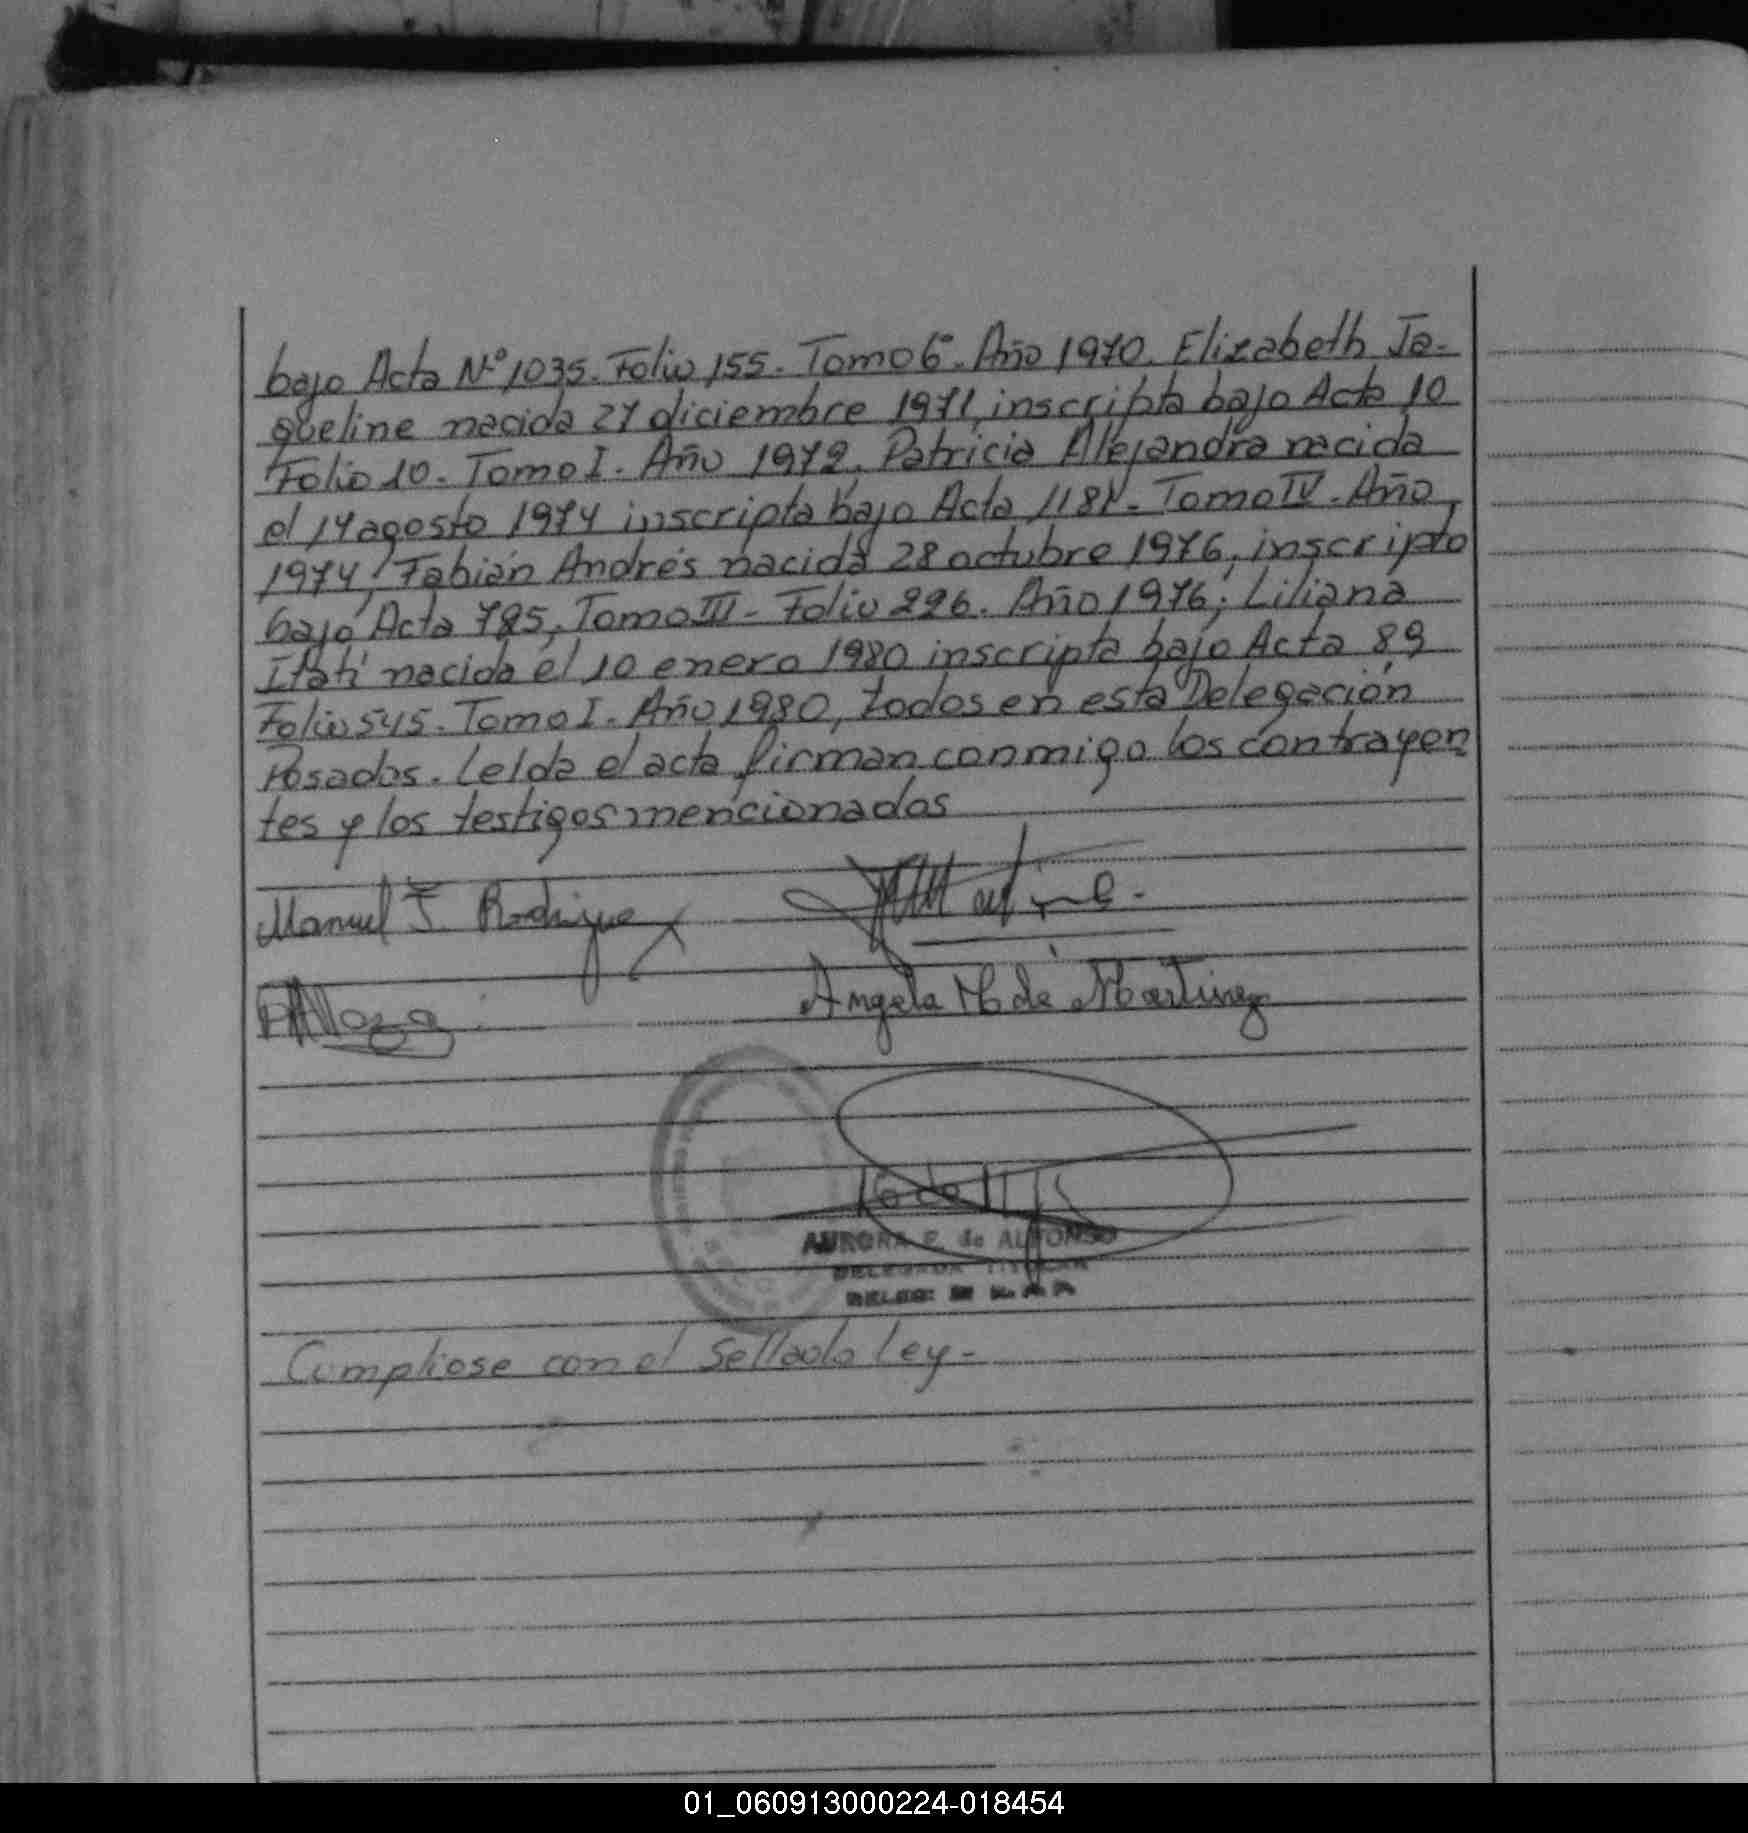 bajo Acta Nº 1035. Folio 155. Tomo 6º. Año 1970. Elizabeth Ja-
queline nacida 27 diciembre 1971, inscripta bajo Acta 10
Folio 10. Tomo I. Año 1972, Patricia Alejandra nacida
el 14 agosto 1974 inscripta bajo Acta 1181. Tomo IV. Año
1974, Fabián Andrés nacida 28 octubre 1976, inscripto
bajo Acta 785, Tomo III - Folio 226. Año 1976; Liliana
Itatí nacida el 10 enero 1980 inscripta bajo Acta 89
Folio 545. Tomo I. Año 1980, todos en esta Delegación
Posadas. Leida el acta firman conmigo los contrayen
tes y los testigos mencionados
Manuel F. Rodriguez
Angela M de Martinez
AURORA F. de ALFONSO
DELEGADA TITULAR
Cumpliose con el Sellado Ley-
01_060913000224-018454